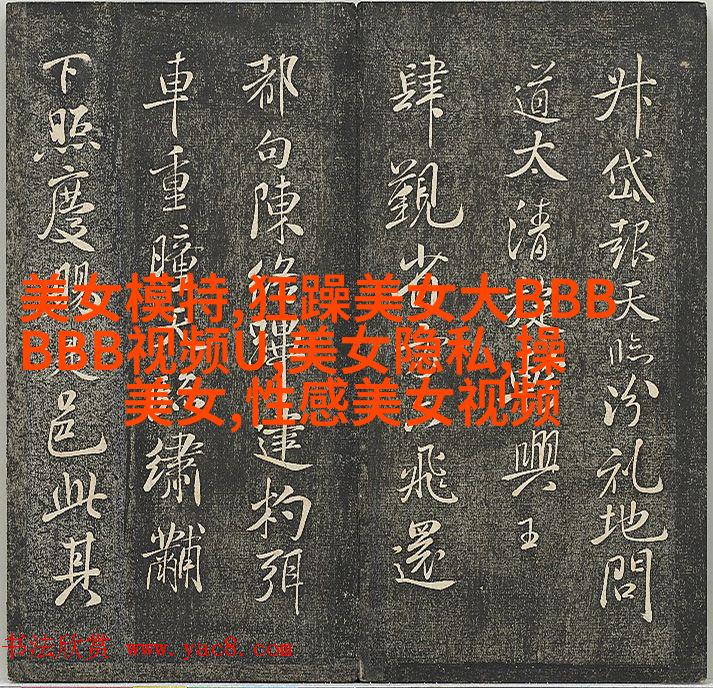 升岱報天临汾礼地問
道太清興王
肆觐省飛還
都句陳络蹕建杓弭
車重瞳繡黼
下照慶賜邑此其
美女模特,狂躁美女大BBB
BBB视频U,美女隐私,操
美女,性感美女视频
书法欣赏 www.yac8.com